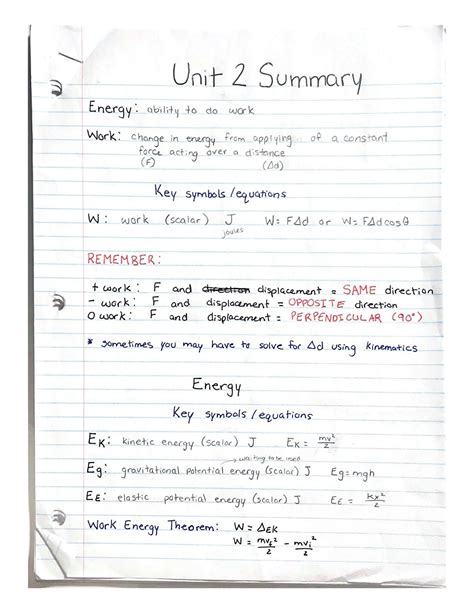 Unit 2 Summary
Energy: ability to do work
Work: change in energy from applying of a constant
force acting over a distance
(F) (Δd)
Key symbols/equations
W: work (scalar) J W=FΔd or W=FΔdcosθ
joules
REMEMBER:
+ work: F and direction displacement = SAME direction
- work: F and displacement = OPPOSITE direction
0 work: F and displacement = PERPENDICULAR (90°)
* sometimes you may have to solve for Δd using kinematics
Energy
Key symbols/equations
EK: kinetic energy (scalar) J EK = mv²/2
→ waiting to be used
Eg: gravitational potential energy (scalar) J Eg=mgh
EE: elastic potential energy (scalar) J EE = kx²/2
Work Energy Theorem: W = ΔEK
W = mvf²/2 - mvi²/2